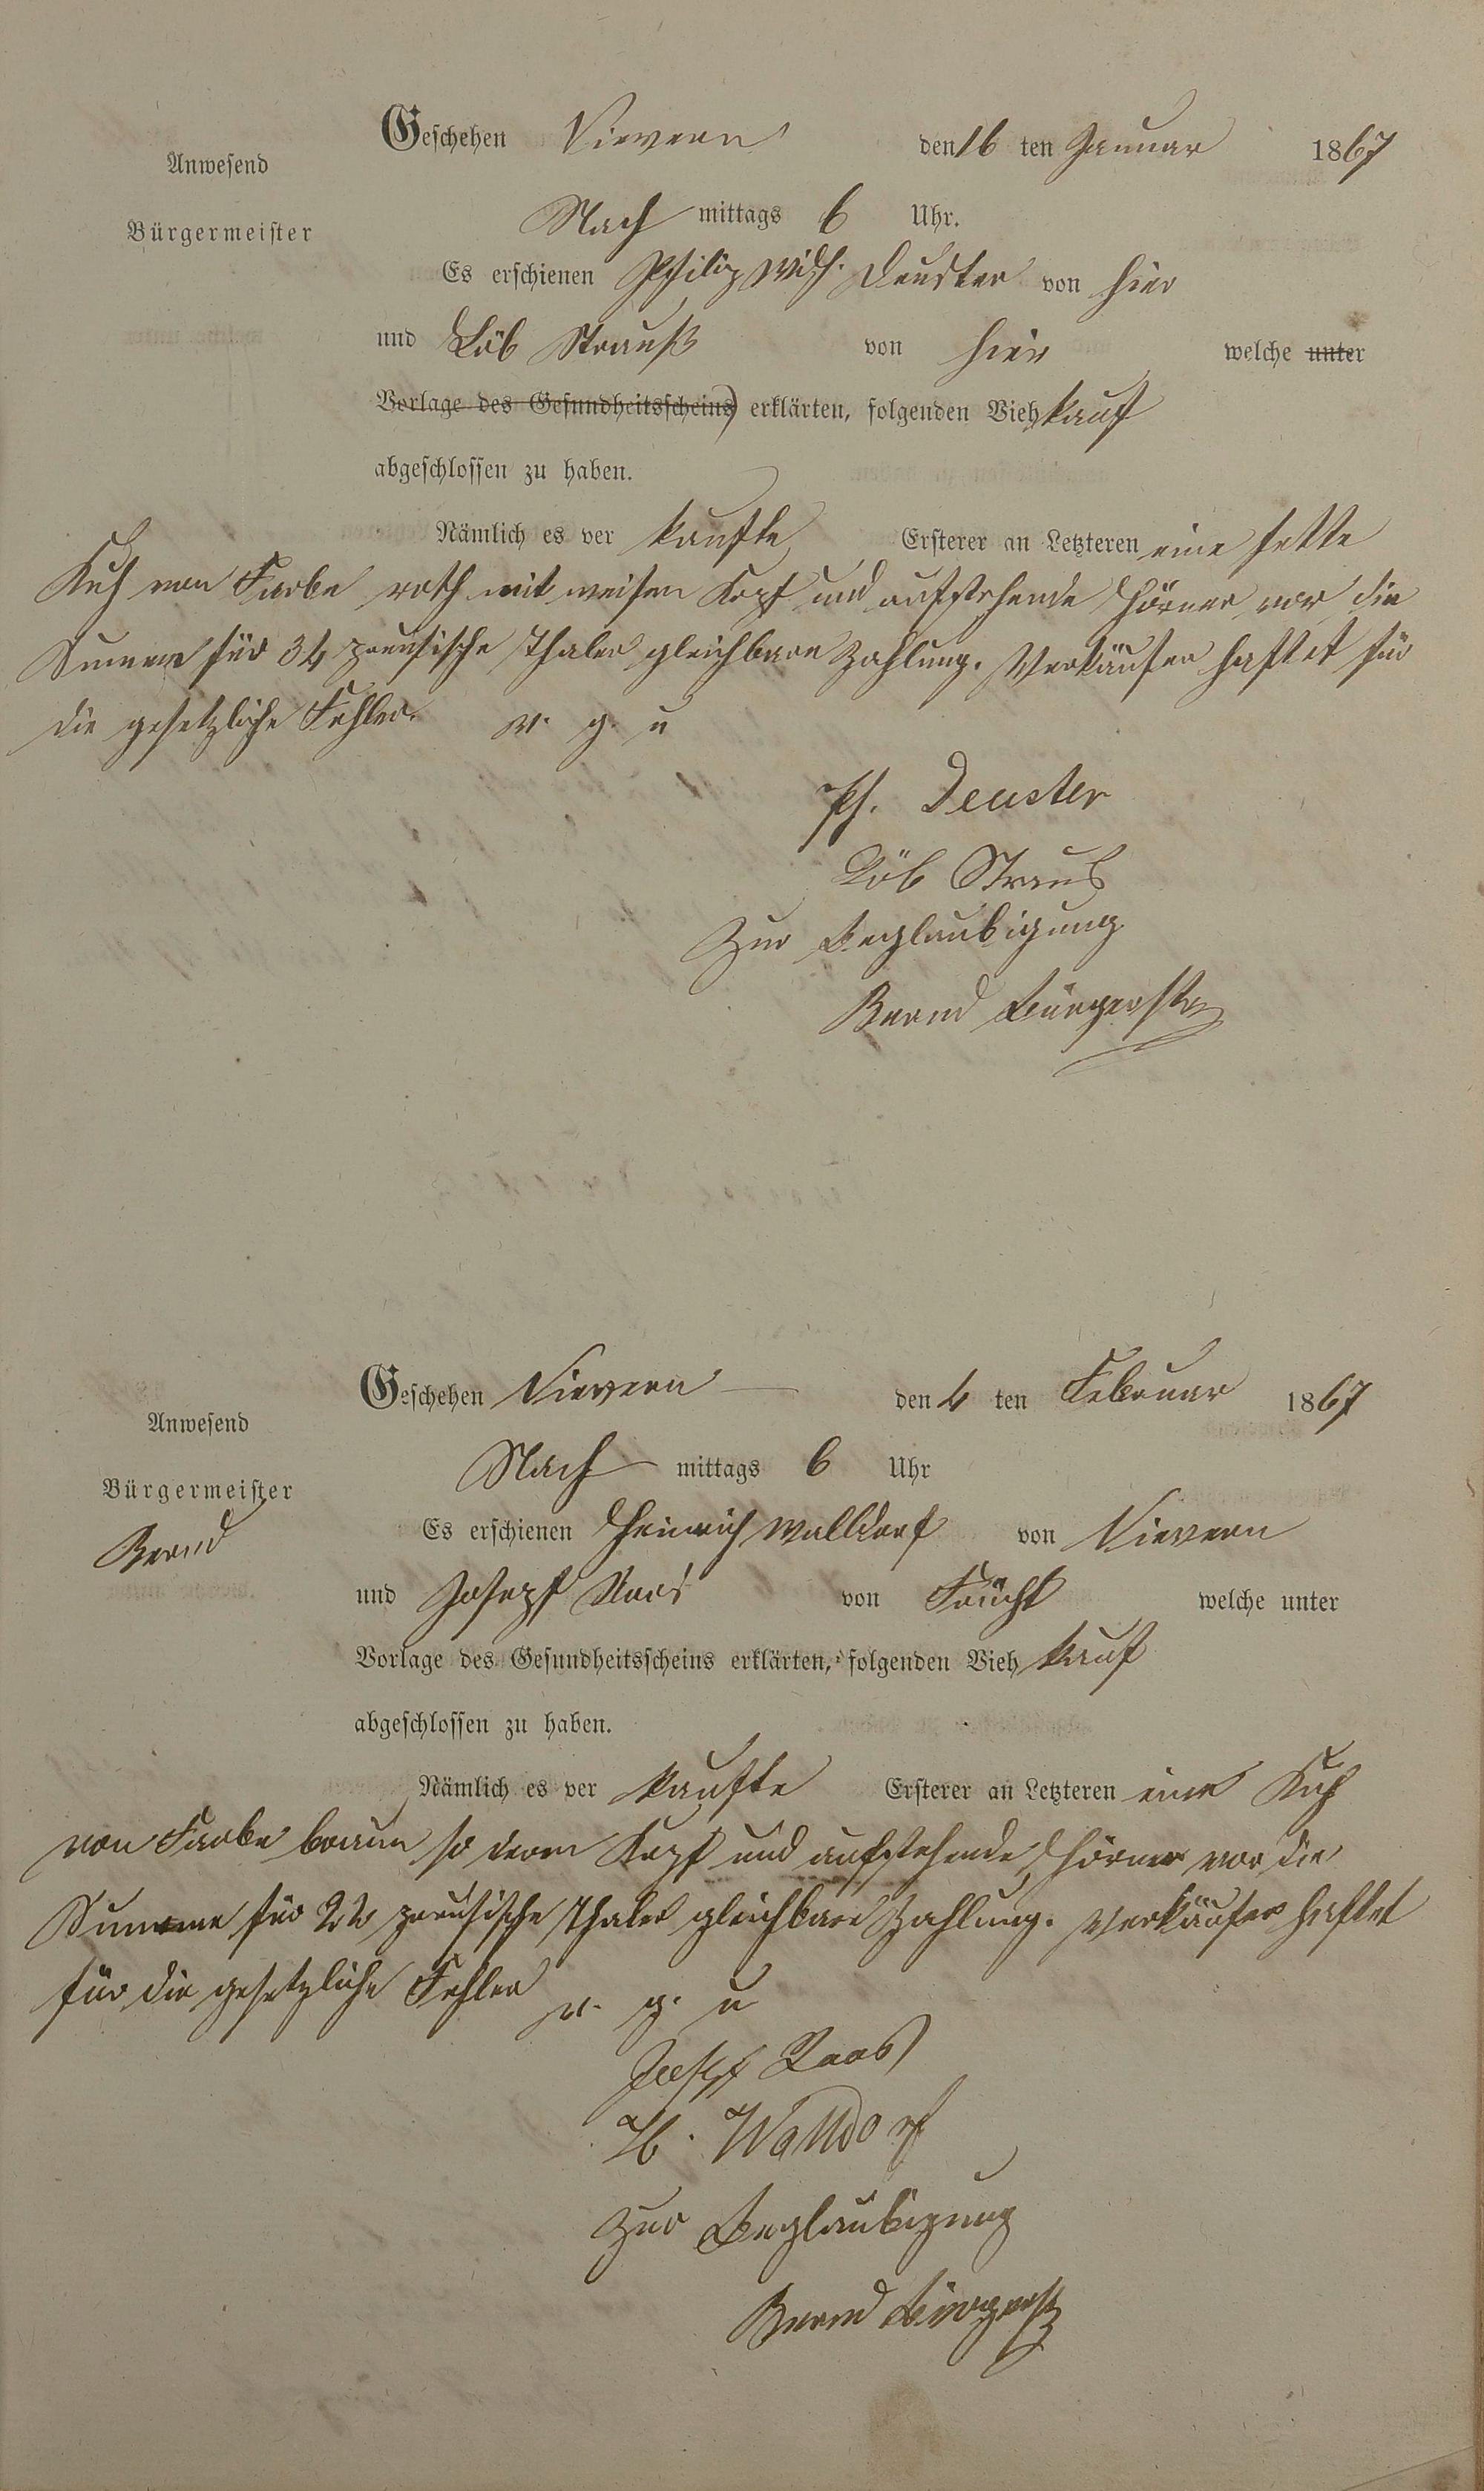 Geschehen Nievern den 16 ten Januar 1867
Anwesend
Nach mittags 6 Uhr.
Bürgermeister
Es erschienen Philip Wilh. Deuster von hier
und Löb Strauß von hier welche unter
Vorlage des Gesundheitsscheins erklärten, folgenden Vieh kauf
abgeschlossen zu haben.
Nämlich es ver kaufte Ersterer an Letzteren eine fette
Kuh von Farbe roth mit weisem Kopf und aufstehende Hörner vor die
Summe für 34 preusische Thaler gleichbare Zahlung. Verkäufer haftet für
die gesetzliche Fehler. v. g. u
Ph. Deuster
Löb Straus
Zur Beglaubigung
Bernd Bürgerstr
Geschehen Nievern den 4 ten Februar 1867
Anwesend
Nach mittags 6 Uhr
Bürgermeister
Bernd
Es erschienen Heinrich Walldorf von Nievern
und Joseph von Frücht welche unter
Vorlage des Gesundheitsscheins erklärten, folgenden Vieh kauf
abgeschlossen zu haben.
Nämlich es ver kaufte Ersterer an Letzteren eine Kuh
von Farbe braun Kopf und aufstehende Hörner vor die
Summe für preusische Thaler gleichbare Zahlung. Verkäufer haftet
für die gesetzliche Fehler v. g. u
Josepf
H. Walldorf
Zur Beglaubigung
Bernd Bürgerstr